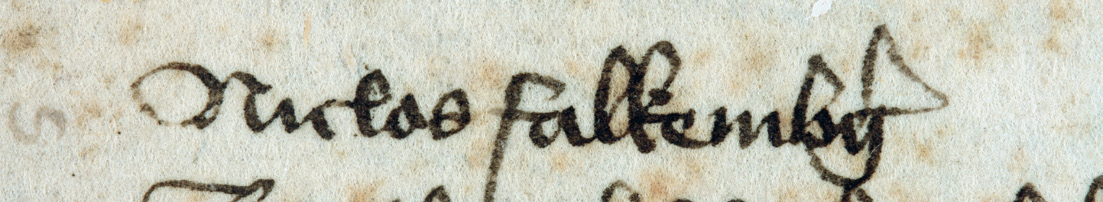 Niclos falkembg